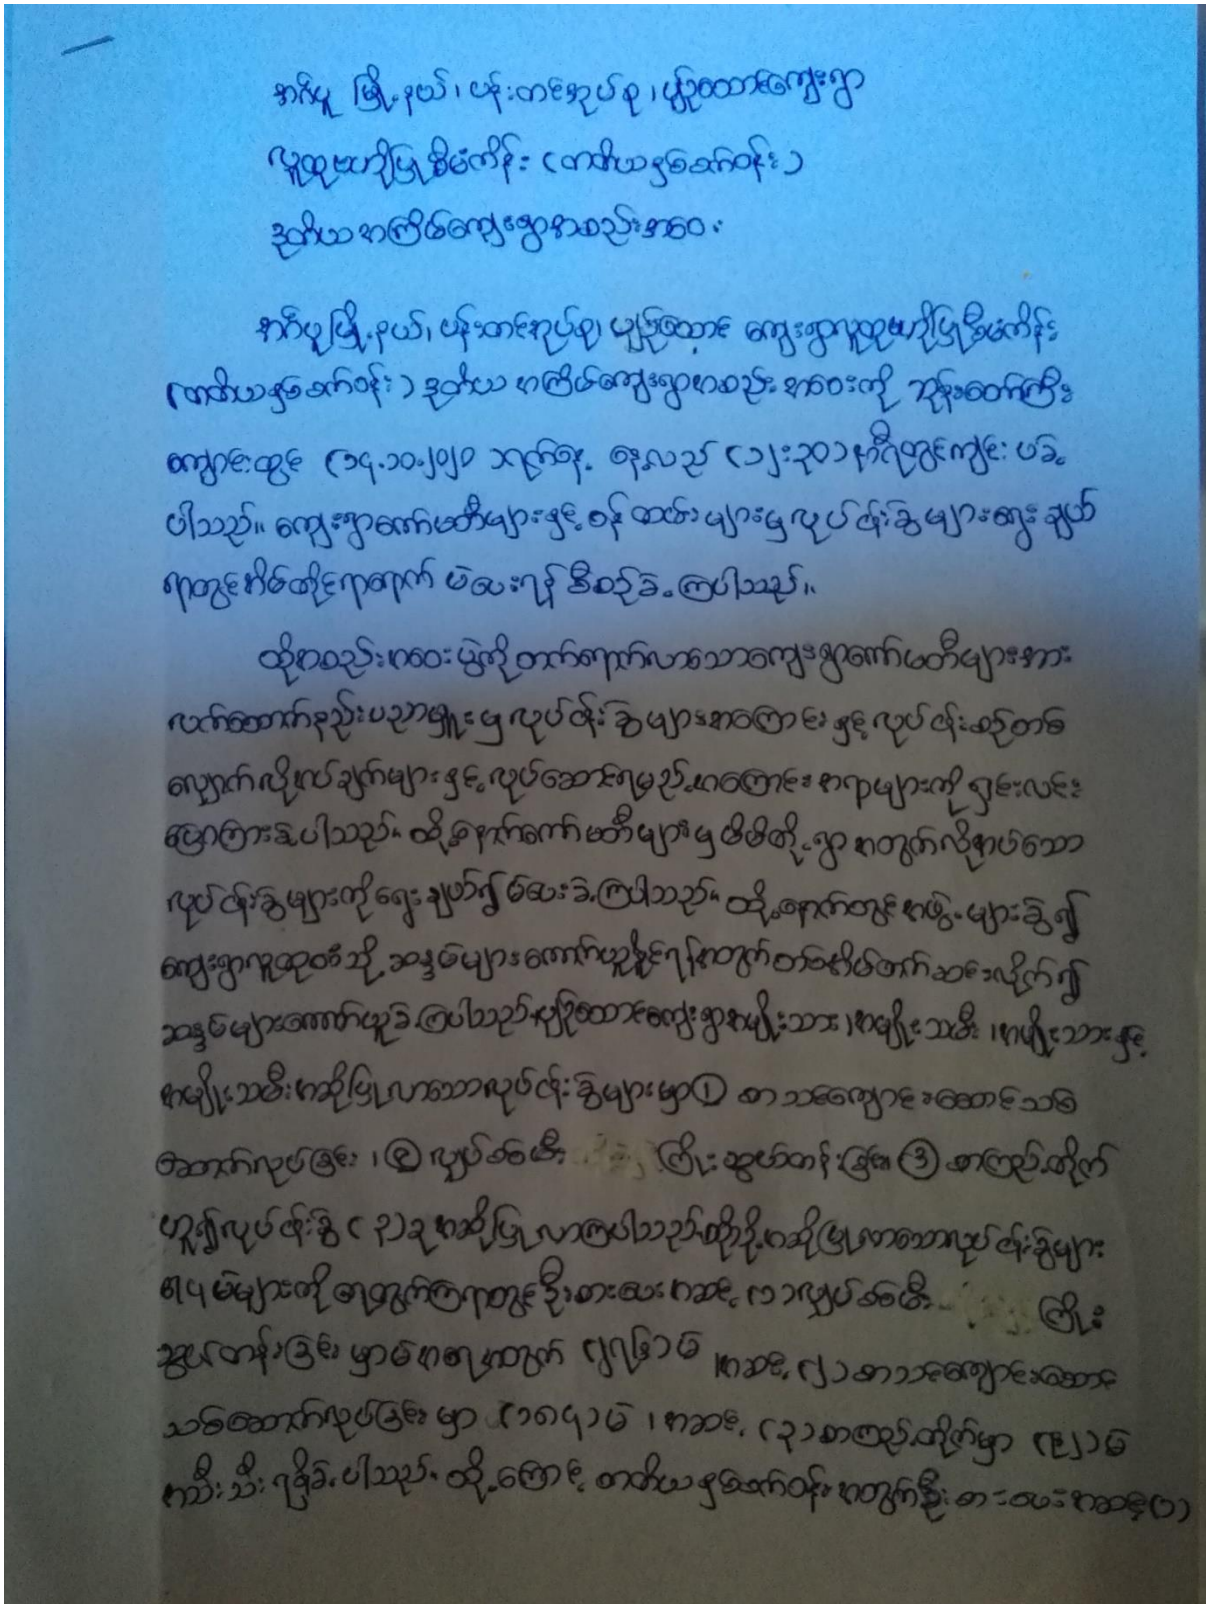 အင်္ဂပူ မြို့နယ်၊ ပန်းတင်အုပ်စု၊ ပျဉ်ထောင်ကျေးရွာ
လူထုဗဟိုပြုစီမံကိန်း (တတိယနှစ်စက်ဝန်း)
ဒုတိယအကြိမ်ကျေးရွာအစည်းအဝေး
အင်္ဂပူမြို့နယ်၊ ပန်းတင်အုပ်စု၊ ပျဉ်ထောင် ကျေးရွာလူထုဗဟိုပြုစီမံကိန်း
(တတိယနှစ်စက်ဝန်း) ဒုတိယ အကြိမ်ကျေးရွာအစည်းအဝေးကို ဘုန်းတော်ကြီး
ကျောင်းတွင် (၁၄.၁၀.၂၀၂၀ ဘရက်နေ့ နေ့လည် (၁၂:၃၀) နာရီတွင်ကျင်းပခဲ့
ပါသည်။ ကျေးရွာကော်မတီများနှင့် ဝန်ထမ်းများမှ လုပ်ငန်းခွဲများရွေးချယ်
ရာတွင်အိမ်တိုင်ရာရောက် မဲပေးရန် စီစဉ်ခဲ့ကြပါသည်။
ထိုအစည်းအဝေးပွဲကို တက်ရောက်လာသောကျေးရွာကော်မတီများအား
လက်ထောက်နည်းပညာမှူးမှ လုပ်ငန်းခွဲများအကြောင်းနှင့် လုပ်ငန်းစဉ်တစ်
လျှောက်လိုအပ်ချက်များနှင့် လုပ်ဆောင်ရမည့်အကြောင်းအရာများကို ရှင်းလင်း
ပြောကြားခဲ့ပါသည်။ ထို့နောက်ကော်မတီများမှ မိမိတို့ရွာအတွက်လိုအပ်သော
လုပ်ငန်းခွဲများကိုရွေးချယ်၍ မဲပေးခဲ့ကြပါသည်။ ထို့နောက်တွင်အဖွဲ့များခွဲ၍
ကျေးရွာလူထုထံသို့ ဆန္ဒမဲများကောက်ယူနိုင်ရန်အတွက်တစ်အိမ်တက်ဆင်းလိုက်၍
ဆန္ဒမဲများကောက်ယူခဲ့ကြပါသည်။ပျဉ်ထောင်ကျေးရွာအမျိုးသား၊အမျိုးသမီး၊အမျိုးသားနှင့်
အမျိုးသမီးအဆိုပြုလာသောလုပ်ငန်းခွဲများမှာ① စာသင်ကျောင်းဆောင်သစ်
ဆောက်လုပ်ခြင်း၊ ② လျှပ်စစ်မီး ကြိုးသွယ်တန်းခြင်း၊ ③ စာကြည့်တိုက်
ဟူ၍လုပ်ငန်းခွဲ (၃)ခုအဆိုပြုလာကြပါသည်။ထိုသို့အဆိုပြုလာသောလုပ်ငန်းခွဲများ
၏ မဲများကို ရေတွက်ကြရာတွင် ဦးစားပေးအဆင့်(၁)လျှပ်စစ်မီး ကြိုး
သွယ်တန်းခြင်းမှာမဲအရေအတွက် မဲ ၊အဆင့်(၂) စာသင်ကျောင်းဆောင်
သစ်ဆောက်လုပ်ခြင်းမှာ (၁၈၄)မဲ ၊ အဆင့် (၃)စာကြည့်တိုက်မှာ (၉၂)မဲ
အသီးသီးရရှိခဲ့ပါသည်။ ထို့ကြောင့် တတိယနှစ်စက်ဝန်းအတွက်ဦးစားပေးအဆင့်(၁)